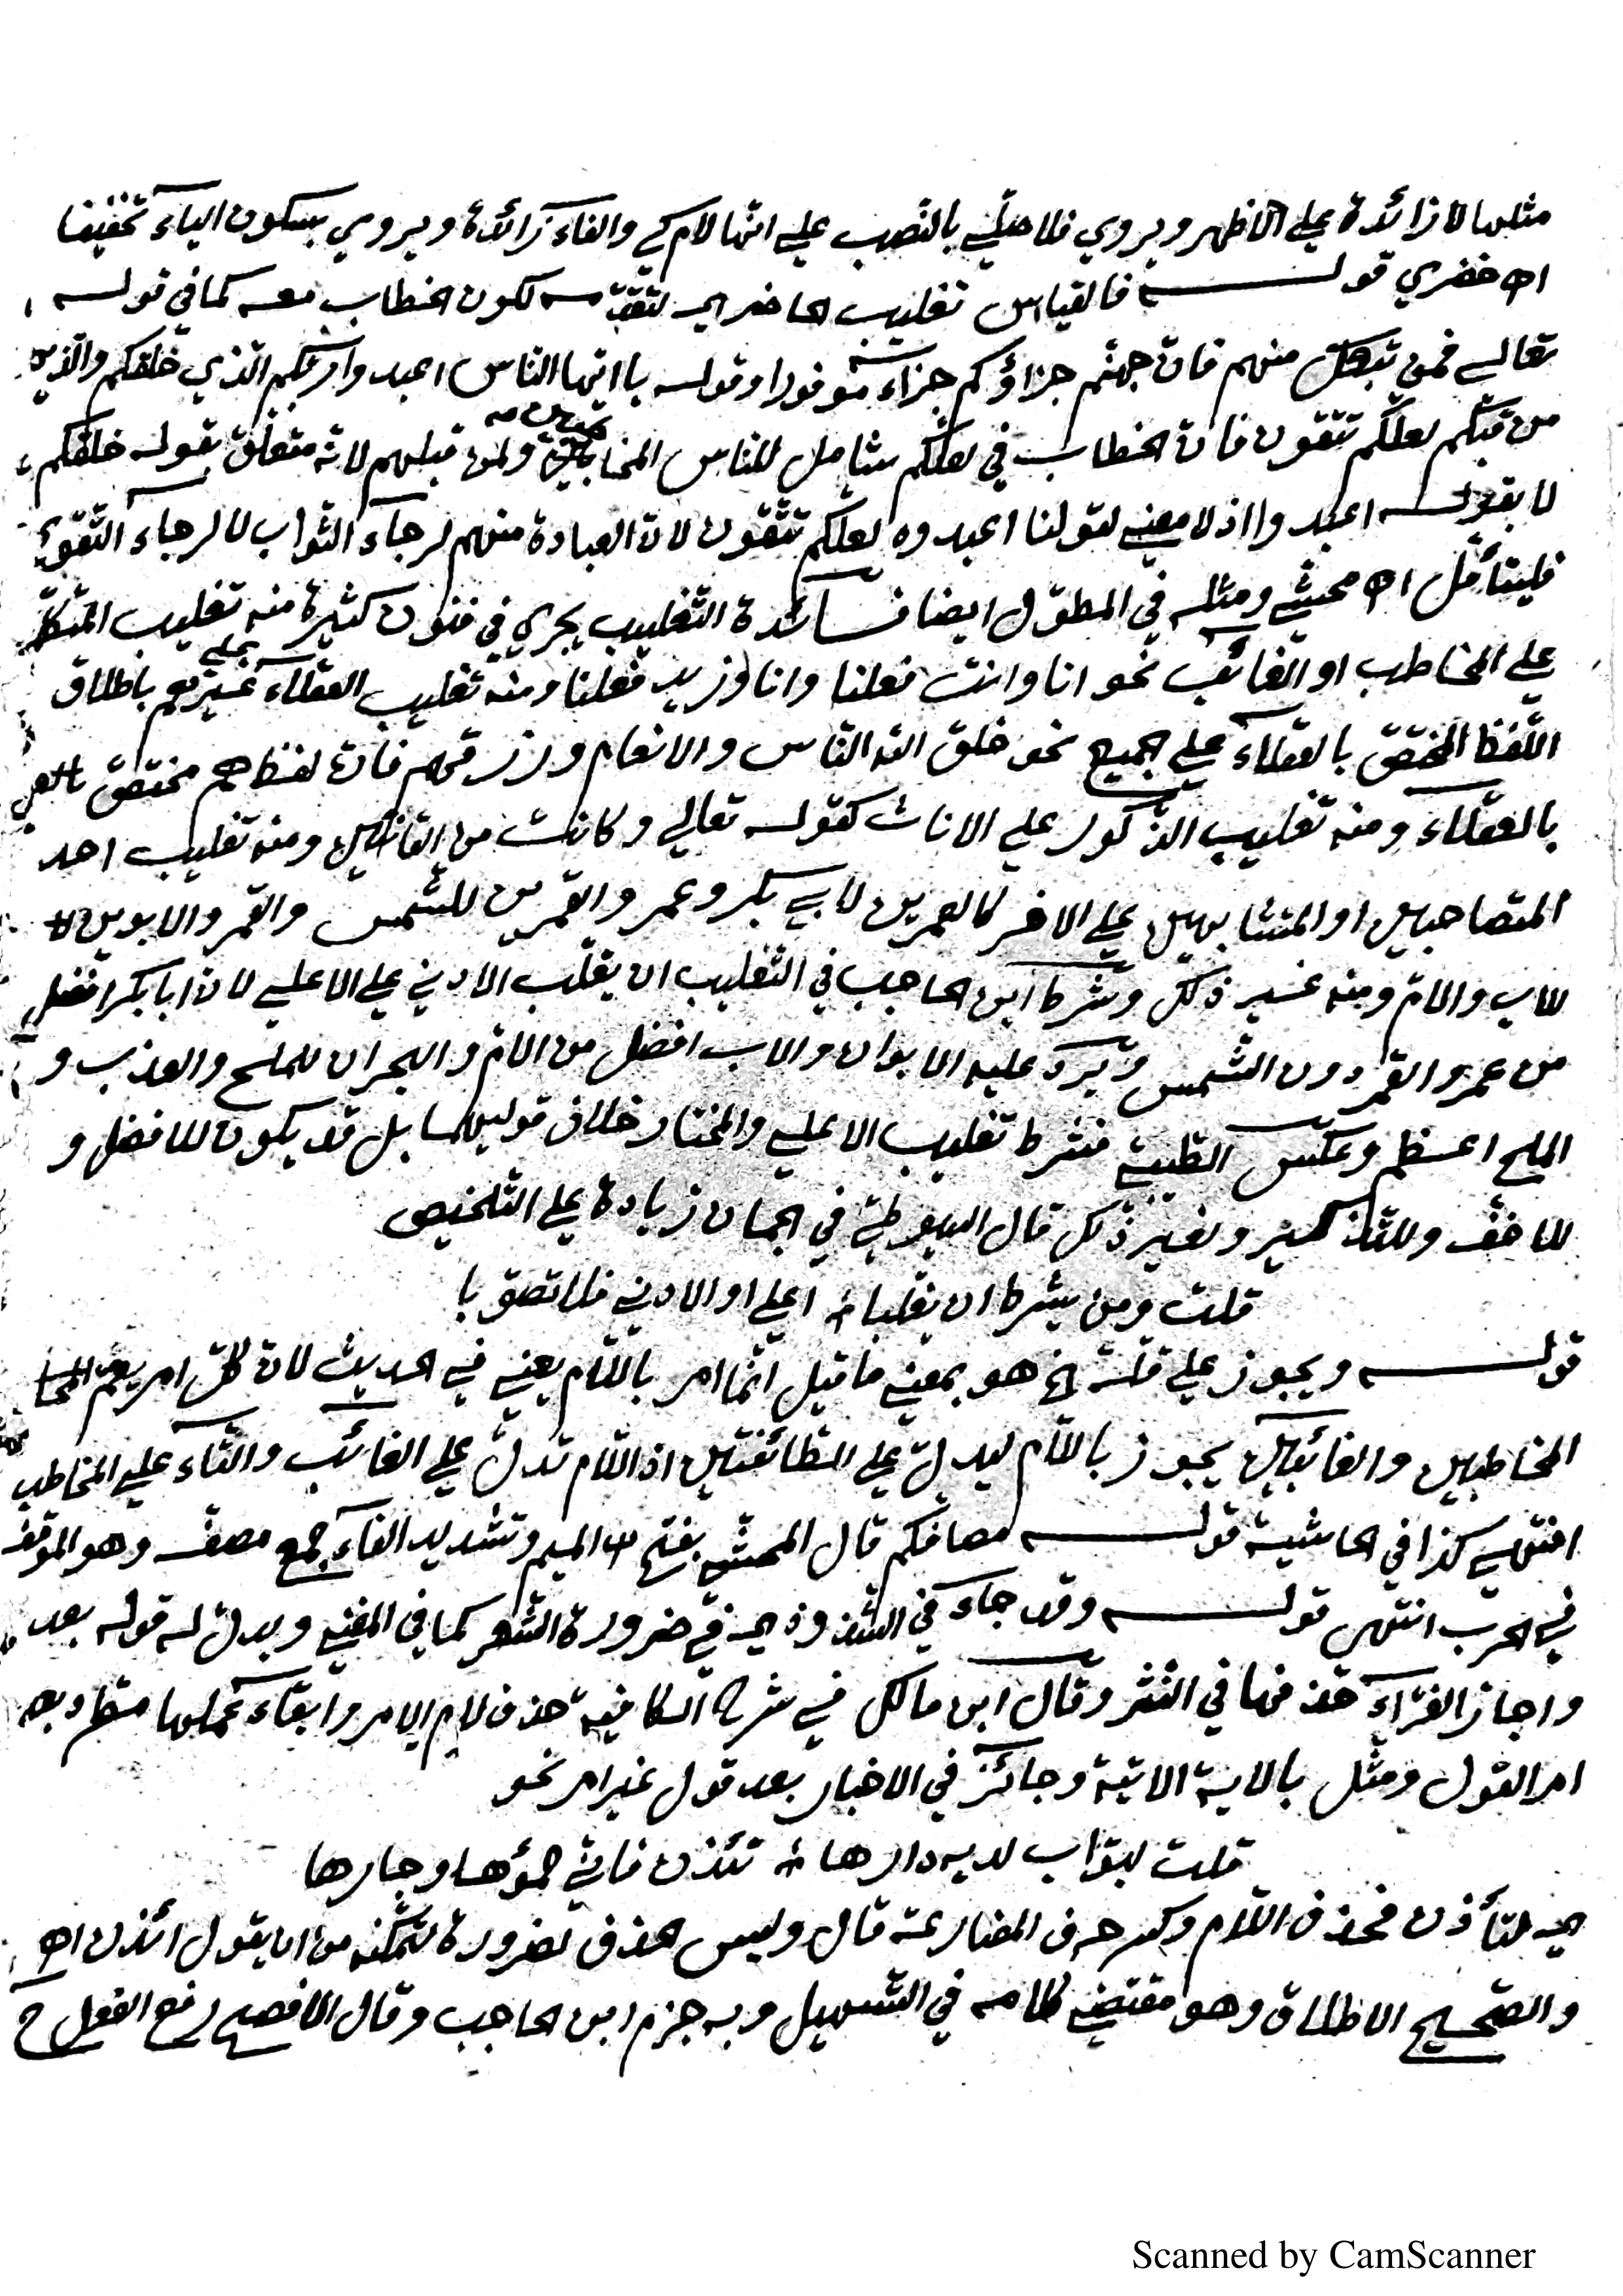 مثلها لا زائدة على الاظهر ويروي فلاصلّي بالنّصب علي انّها لام كي والفاء زائدة ويروي بسكون الياء تخفيفا
اه خضري قوله فالقياس تغليب الحاضر اي لتقدّمه لكون الخطاب معه كما في قوله
تعالي فمن تبعك منهم فانّ جهنّم جزاؤكم جزاء موفورا وقوله يا ايّها النّاس اعبدوا ربّكم الّذي خلقكم والّذين
من قبلكم لعلّكم تتّقون فانّ الخطاب في لعلّكم شامل للنّاس المخاطبين ولمن قبلهم لانّه متعلّق بقوله خلقكم
لا بقوله اعبدوا اذ لا معني لقولنا اعبدوه لعلّكم تتّقون لانّ العبادة منهم لرجاء الثّواب لا لرجاء التّقوي
فليتأمّل اه محشّي ومثله في المطوّل ايضا فائدة التّغليب يجري في فنون كثيرة منه تغليب المتكلّم
علي المخاطب او الغائب نحو انا وانت فعلنا وانا وزيد فعلنا ومنه تغليب العقلاء علي غيرهم باطلاق
اللّفظ المختصّ بالعقلاء علي الجميع نحو خلق الله النّاس والانعام ورزقهم فانّ لفظ هم مختصّ
بالعقلاء ومنه تغليب الذّكور علي الاناث كقوله تعالي وكانت من القانتين ومنه تغليب احد
المتصاحبين او المتشابهين علي الاخر كالعمرين لابي بكر وعمر والقمرين للشّمس والقمر والابوين
للاب والامّ ومنه غير ذلك وشرط ابن الحاجب في التّغليب ان يغلّب الادني علي الاعلي لانّ ابابكر افضل
من عمر والقمر دون الشّمس ويردّ عليه الابوان والاب افضل من الامّ والبحران للملح والعذب و
الملح اعظم وعكس الطّيبي فشرط تغليب الاعلي والمختار خلاف قوليهما بل قد يكون للافضل و
للاخفّ وللتّذكير ولغير ذلك قال السّيوطيّ في الجمان زيادة علي التّلخيص
قلت ومن يشرط ان يغلّبا اعلي او الادني فلا تصوّبا
قوله ويجوز علي قلّة الخ هو بمعني ما قيل انّما امر باللّام يعني في الحديث لانّ كلّ امر يعمّ
المخاطبين والغائبين يجوز باللّام ليدلّ علي الطّائفتين اذ اللّام تدلّ علي الغائب والتّاء علي المخاطب
انتهي كذا في الحاشية قوله مصافّكم قال المحشّي بفتح الميم وتشديد الفاء جمع مصفّ وهو الموقف
في الحرب انتهي قوله وقد جاء في الشّذوذ اي في ضرورة الشّعر كما في المغني ويدلّ له قوله بعد
واجاز الفرّاء حذفها في النّثر وقال ابن مالك في شرح الكافية حذف لام الامر وابقاء عملها مطّرد بعد
امر القول ومثّل بالاية الاتية وجائز في الاخبار بعد قول غير امر نحو
قلت لبوّاب لديه دارها تئذن فانّي حمؤها وجارها
اي لتأذن فحذف اللّام وكسر حرف المضارعة قال وليس الحذف لضرورة لتمكّنه من ان يقول ائذن اه
والصّحيح الاطلاق وهو مقتضي كلامه في التّسهيل وبه جزم ابن الحاجب وقال الافصح رفع الفعل ح
Scanned by CamScanner